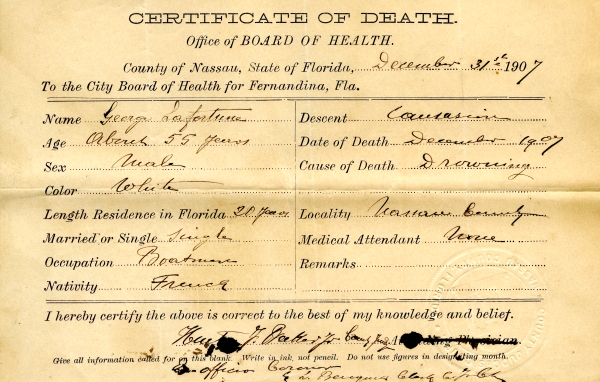 CERTIFICATE OF DEATH.
Office of BOARD OF HEALTH.
County of Nassau, State of Florida, December 31st 1907
To the City Board of Health for Fernandina, Fla.
Name George Lafortune
Age About 55 years
Sex Male
Color White
Length Residence in Florida 20 years
Married or Single Single
Occupation Boatman
Nativity French
Descent Caucasian
Date of Death December 1907
Cause of Death Drowning
Locality Nassau County
Medical Attendant None
Remarks
I hereby certify the above is correct to the best of my knowledge and belief.
J. Attending Physician.
Give all information called for on this blank. Write in ink, not pencil. Do not use figures in designating month.
officio Coroner